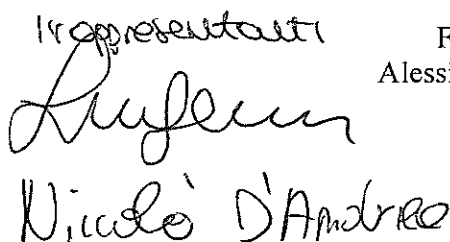 I rappresentanti
F
Alessi
Nicolò D'Andrea